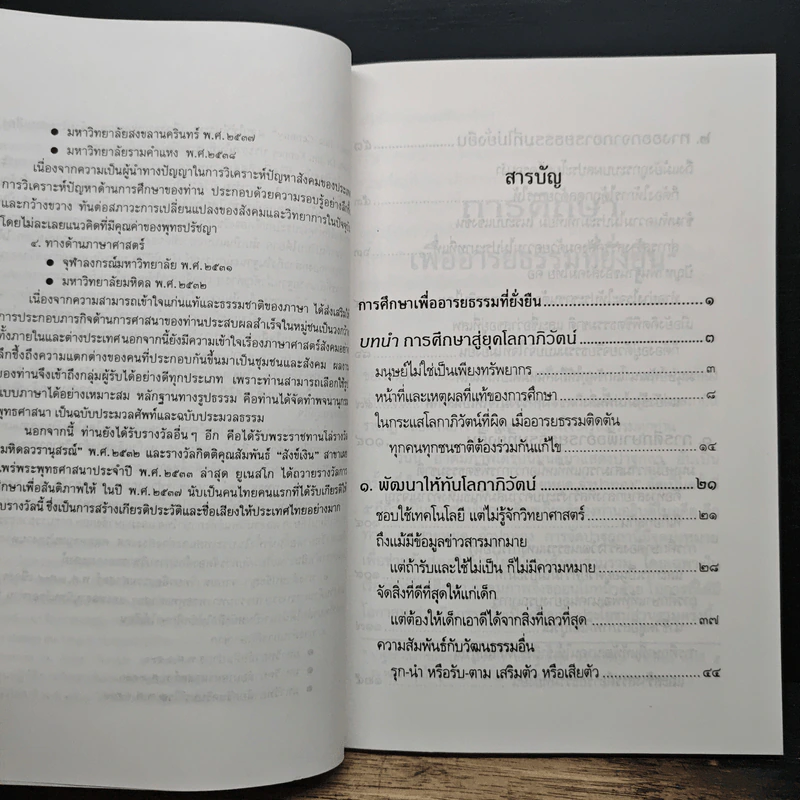 ● มหาวิทยาลัยสงขลานครินทร์ พ.ศ.๒๕๓๗
● มหาวิทยาลัยรามคำแหง พ.ศ.๒๕๓๘
เนื่องจากความเป็นผู้นำทางปัญญาในการวิเคราะห์ปัญหาสังคมของประเทศ
การวิเคราะห์ปัญหาด้านการศึกษาของท่าน ประกอบด้วยความรอบรู้อย่างลึกซึ้ง
และกว้างขวาง ทันต่อสภาวะการเปลี่ยนแปลงของสังคมและวิทยาการในปัจจุบัน
โดยไม่ละเลยแนวคิดที่มีคุณค่าของพุทธปรัชญา
๔. ทางด้านภาษาศาสตร์
● จุฬาลงกรณ์มหาวิทยาลัย พ.ศ.๒๕๓๑
● มหาวิทยาลัยมหิดล พ.ศ.๒๕๓๒
เนื่องจากความสามารถเข้าใจแก่นแท้และธรรมชาติของภาษา ได้ส่งเสริมให้
การประกอบภารกิจด้านการศาสนาของท่านประสบผลสำเร็จในหมู่ชนเป็นวงกว้าง
ทั้งภายในและต่างประเทศนอกจากนี้ยังมีความเข้าใจเรื่องภาษาศาสตร์สังคมอย่าง
ลึกซึ้งถึงความแตกต่างของคนที่ประกอบกันขึ้นมาเป็นชุมชนและสังคม ผลงาน
ของท่านจึงเข้าถึงกลุ่มผู้รับได้อย่างดีทุกประเภท เพราะท่านสามารถเลือกใช้รูป
แบบภาษาได้อย่างเหมาะสม หลักฐานทางรูปธรรม คือท่านได้จัดทำพจนานุกรม
พุทธศาสนา เป็นฉบับประมวลศัพท์และฉบับประมวลธรรม
นอกจากนี้ ท่านยังได้รับรางวัลอื่นๆ อีก คือได้รับพระราชทานโล่รางวัล
มหิดลวรานุสรณ์” พ.ศ.๒๕๓๒ และรางวัลกิตติคุณสัมพันธ์ “สังข์เงิน” สาขาเผย
แพร่พระพุทธศาสนาประจำปี พ.ศ.๒๕๓๓ ล่าสุด ยูเนสโก ได้ถวายรางวัลการ
ศึกษาเพื่อสันติภาพให้ ในปี พ.ศ.๒๕๓๗ นับเป็นคนไทยคนแรกที่ได้รับเกียรติให้
รับรางวัลนี้ ซึ่งเป็นการสร้างเกียรติประวัติและชื่อเสียงให้ประเทศไทยอย่างมาก
สารบัญ
การศึกษาเพื่ออารยธรรมที่ยั่งยืน ........ ๑
บทนำ การศึกษาสู่ยุคโลกาภิวัตน์ ........ ๓
มนุษย์ไม่ใช่เป็นเพียงทรัพยากร ........ ๓
หน้าที่และเหตุผลที่แท้ของการศึกษา ........ ๘
ในกระแสโลกาภิวัตน์ที่ผิด เมื่ออารยธรรมติดตัน
ทุกคนทุกชนชาติต้องร่วมกันแก้ไข ........ ๑๔
๑. พัฒนาให้ทันโลกาภิวัตน์ ........ ๒๑
ชอบใช้เทคโนโลยี แต่ไม่รู้จักวิทยาศาสตร์ ........ ๒๑
ถึงแม้มีข้อมูลข่าวสารมากมาย
แต่ถ้ารับและใช้ไม่เป็น ก็ไม่มีความหมาย ........ ๒๘
จัดสิ่งที่ดีที่สุดให้แก่เด็ก
แต่ต้องให้เด็กเอาดีได้จากสิ่งที่เลวที่สุด ........ ๓๗
ความสัมพันธ์กับวัฒนธรรมอื่น
รุก-นำ หรือรับ-ตาม เสริมตัว หรือเสียตัว ........ ๔๔